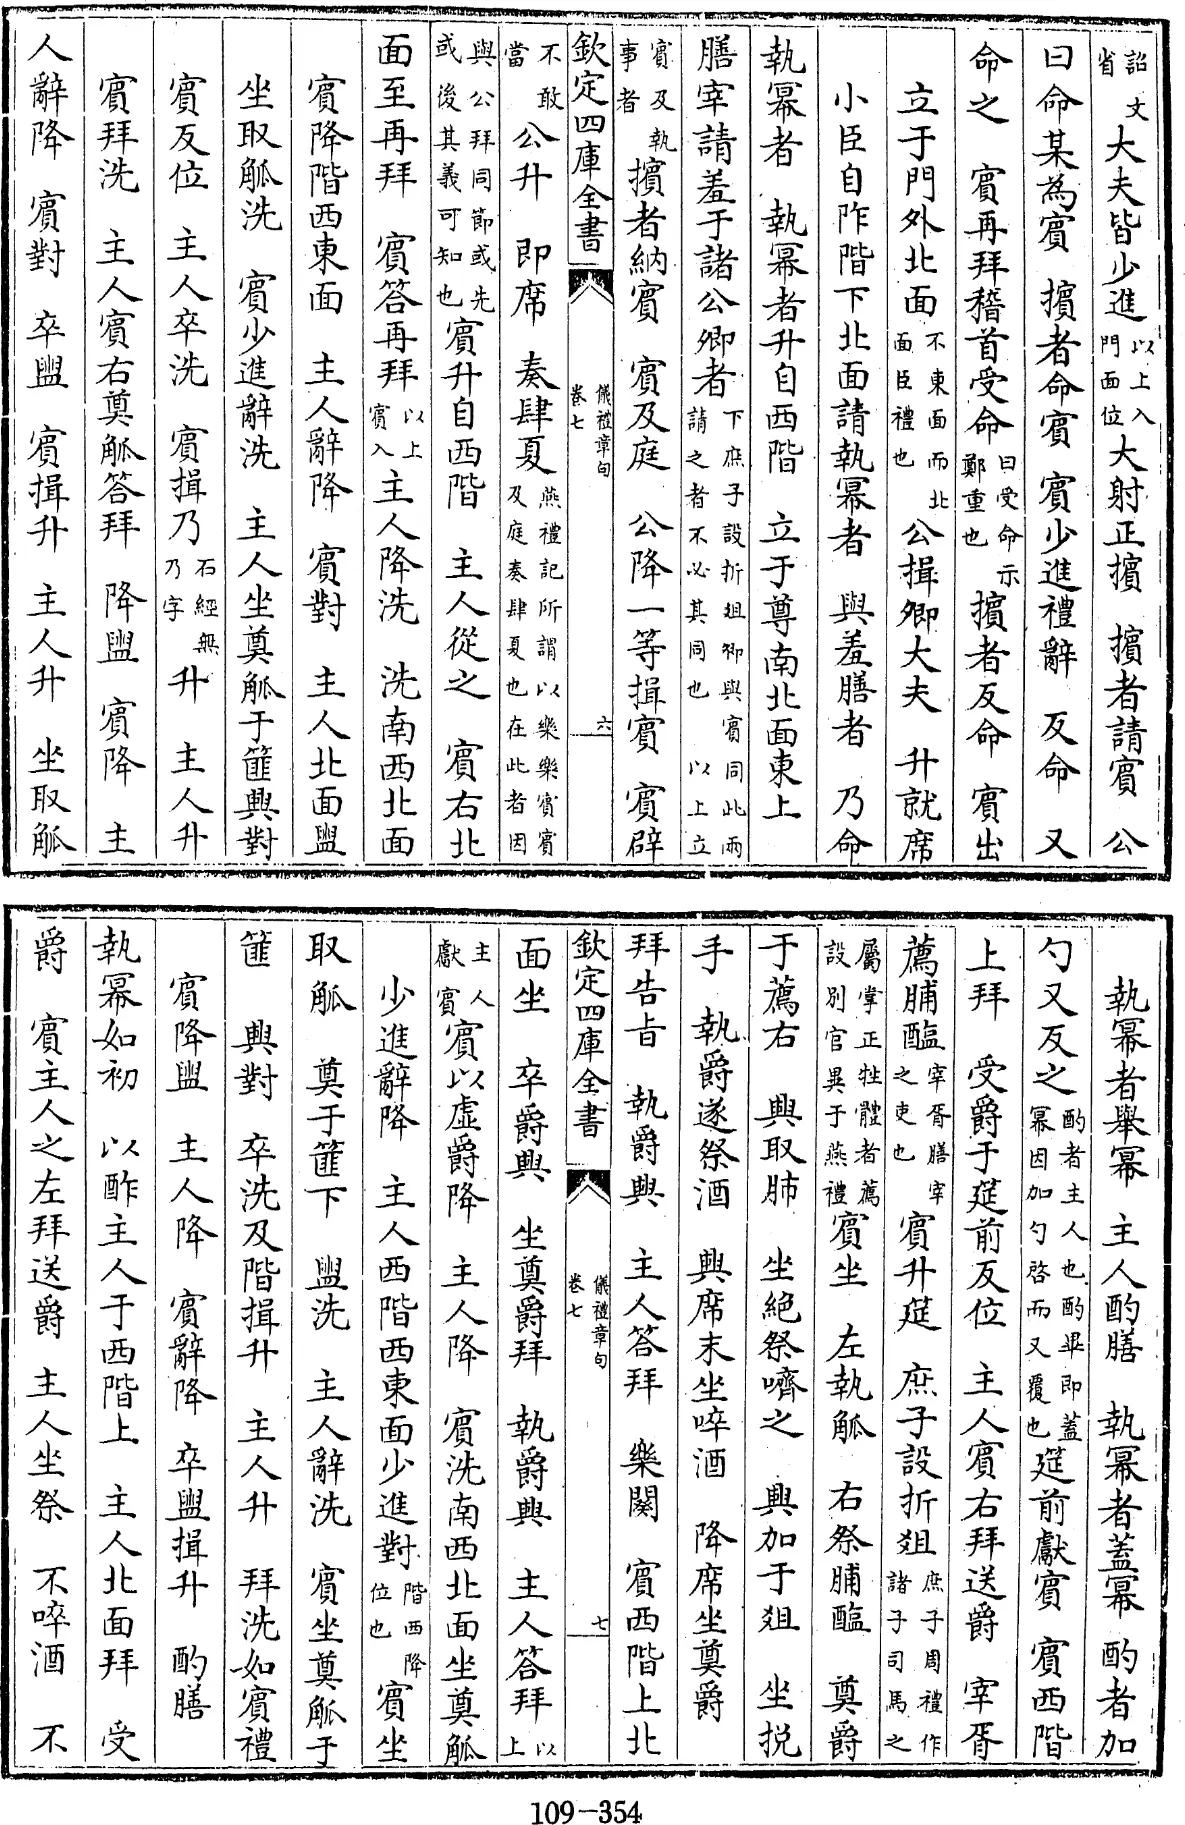 詔文省大夫皆少進以上入門面位大射正擯　擯者請賓　公
曰命某為賓　擯者命賓　賓少進禮辭　反命　又
命之　賓再拜稽首受命曰受命示鄭重也擯者反命　賓出
立于門外北面不東面而北面臣禮也公揖卿大夫　升就席
小臣自阼階下北面請執冪者　與羞膳者　乃命
執冪者　執冪者升自西階　立于尊南北面東上
膳宰請羞于諸公卿者下庶子設折俎卿與賓同此兩請之者不必其同也　以上立
賓及執事者擯者納賓　賓及庭　公降一等揖賓　賓辟
欽定四庫全書　儀禮章句　卷七　六
不敢當公升　即席　奏肆夏燕禮記所謂以樂樂賓賓及庭奏肆夏也在此者因
與公拜同節或先或後其義可知也賓升自西階　主人從之　賓右北
面至再拜　賓答再拜以上賓入主人降洗　洗南西北面
賓降階西東面　主人辭降　賓對　主人北面盥
坐取觚洗　賓少進辭洗　主人坐奠觚于篚興對
賓反位　主人卒洗　賓揖乃石經無乃字升　主人升
賓拜洗　主人賓右奠觚答拜　降盥　賓降　主
人辭降　賓對　卒盥　賓揖升　主人升　坐取觚
執冪者舉冪　主人酌膳　執冪者蓋冪　酌者加
勺又反之酌者主人也酌畢即蓋冪因加勺啓而又覆也筵前獻賓　賓西階
上拜　受爵于筵前反位　主人賓右拜送爵　宰胥
薦脯醢宰胥膳宰之吏也　賓升筵　庶子設折俎庶子周禮作諸子司馬之
屬掌正牲體者薦設別官異于燕禮賓坐　左執觚　右祭脯醢　奠爵
于薦右　興取肺　坐絕祭嚌之　興加于俎　坐挩
手　執爵遂祭酒　興席末坐啐酒　降席坐奠爵
拜告旨　執爵興　主人答拜　樂闋　賓西階上北
欽定四庫全書　儀禮章句　卷七　七
面坐　卒爵興　坐奠爵拜　執爵興　主人答拜以上
主人獻賓賓以虛爵降　主人降　賓洗南西北面坐奠觚
少進辭降　主人西階西東面少進對階西降位也　賓坐
取觚　奠于篚下　盥洗　主人辭洗　賓坐奠觚于
篚　興對　卒洗及階揖升　主人升　拜洗如賓禮
賓降盥　主人降　賓辭降　卒盥揖升　酌膳
執冪如初　以酢主人于西階上　主人北面拜　受
爵　賓主人之左拜送爵　主人坐祭　不啐酒　不
109-354